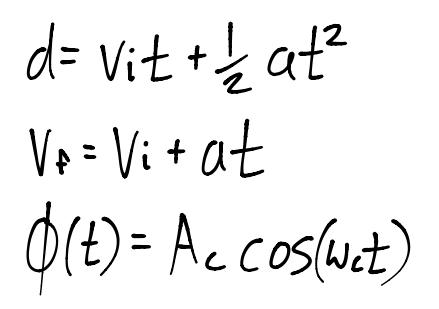 d = vᵢt + ½ at²
v_f = vᵢ + at
ϕ(t) = A_c cos(ω_c t)